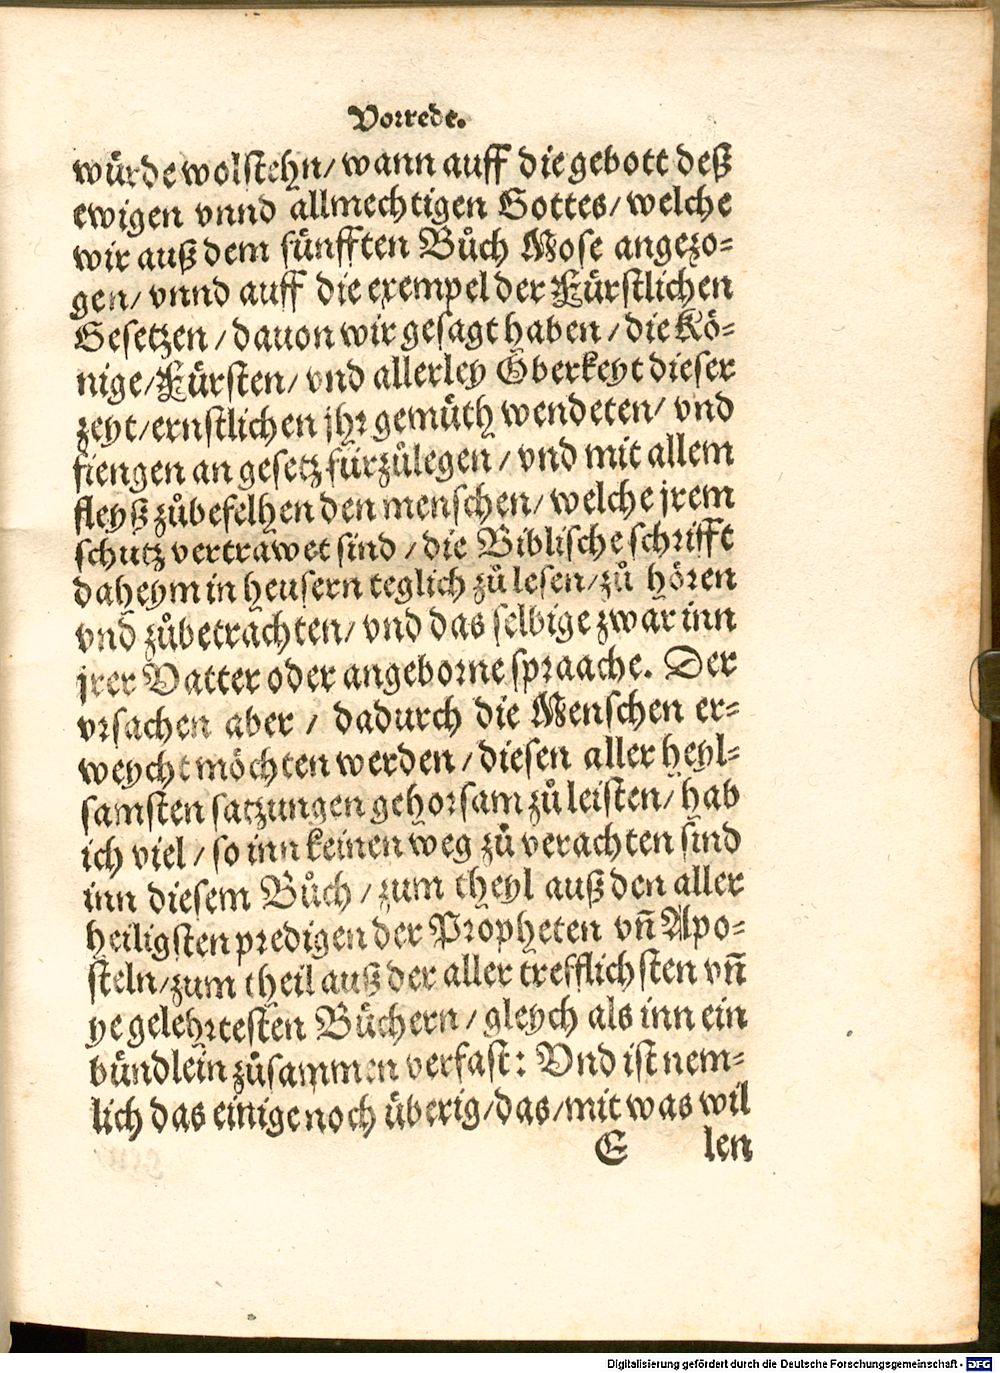 Vorrede.
würde wolstehn/ wann auff die gebott deß
ewigen vnnd allmechtigen Gottes/ welche
wir auß dem fünfften Bůch Mose angezo-
gen/ vnnd auff die exempel der Fürstlichen
Gesetzen/ dauon wir gesagt haben/ die Kö-
nige/ Fürsten/ vnd allerley Oberkeyt dieser
zeyt/ ernstlichen jhr gemüth wendeten/ vnd
fiengen an gesetz fürzůlegen/ vnd mit allem
fleyß zůbefelhen den menschen/ welche jrem
schutz vertrawet sind/ die Biblische schrifft
daheym in heusern teglich zů lesen/ zů hören
vnd zůbetrachten/ vnd das selbige zwar inn
jrer Vatter oder angeborne spraache. Der
vrsachen aber/ dadurch die Menschen er-
weycht möchten werden/ diesen aller heyl-
samsten satzungen gehorsam zů leisten/ hab
ich viel/ so inn keinen weg zů verachten sind
inn diesem Bůch/ zum theyl auß den aller
heiligsten predigen der Propheten vñ Apo-
steln/ zum theil auß der aller trefflichsten vñ
ye gelehrtesten Büchern/ gleych als inn ein
bündlein zůsammen verfast: Vnd ist nem-
lich das einige noch überig/ das/ mit was wil
E len
Digitalisierung gefördert durch die Deutsche Forschungsgemeinschaft - DFG